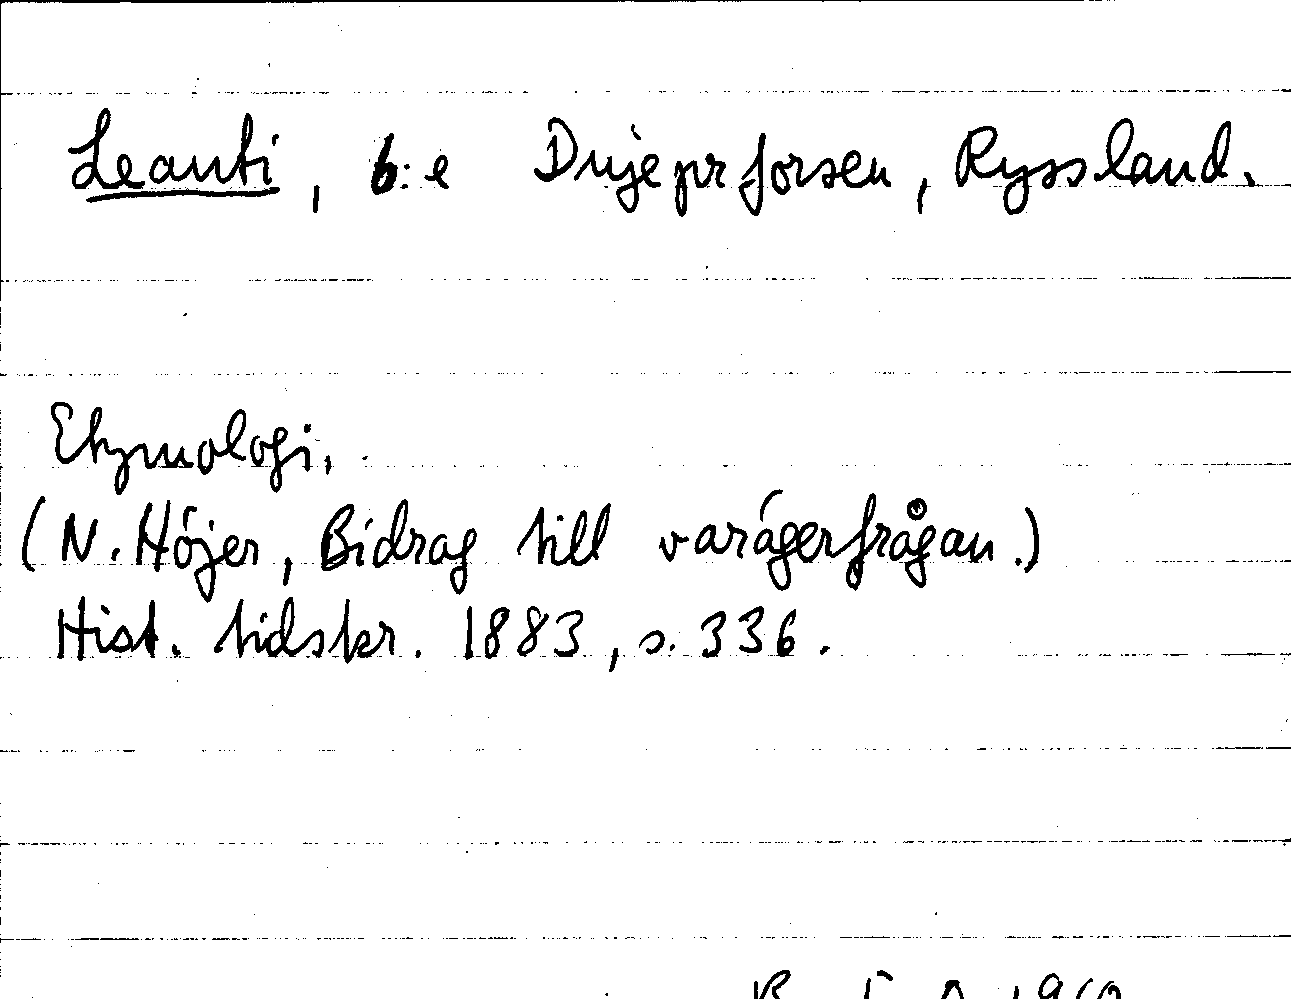 Leanti, 6:e Dnjeprforsen, Ryssland.
Etymologi.
(N. Höjer, Bidrag till varägerfrågan.)
Hist. tidskr. 1883, s. 336.